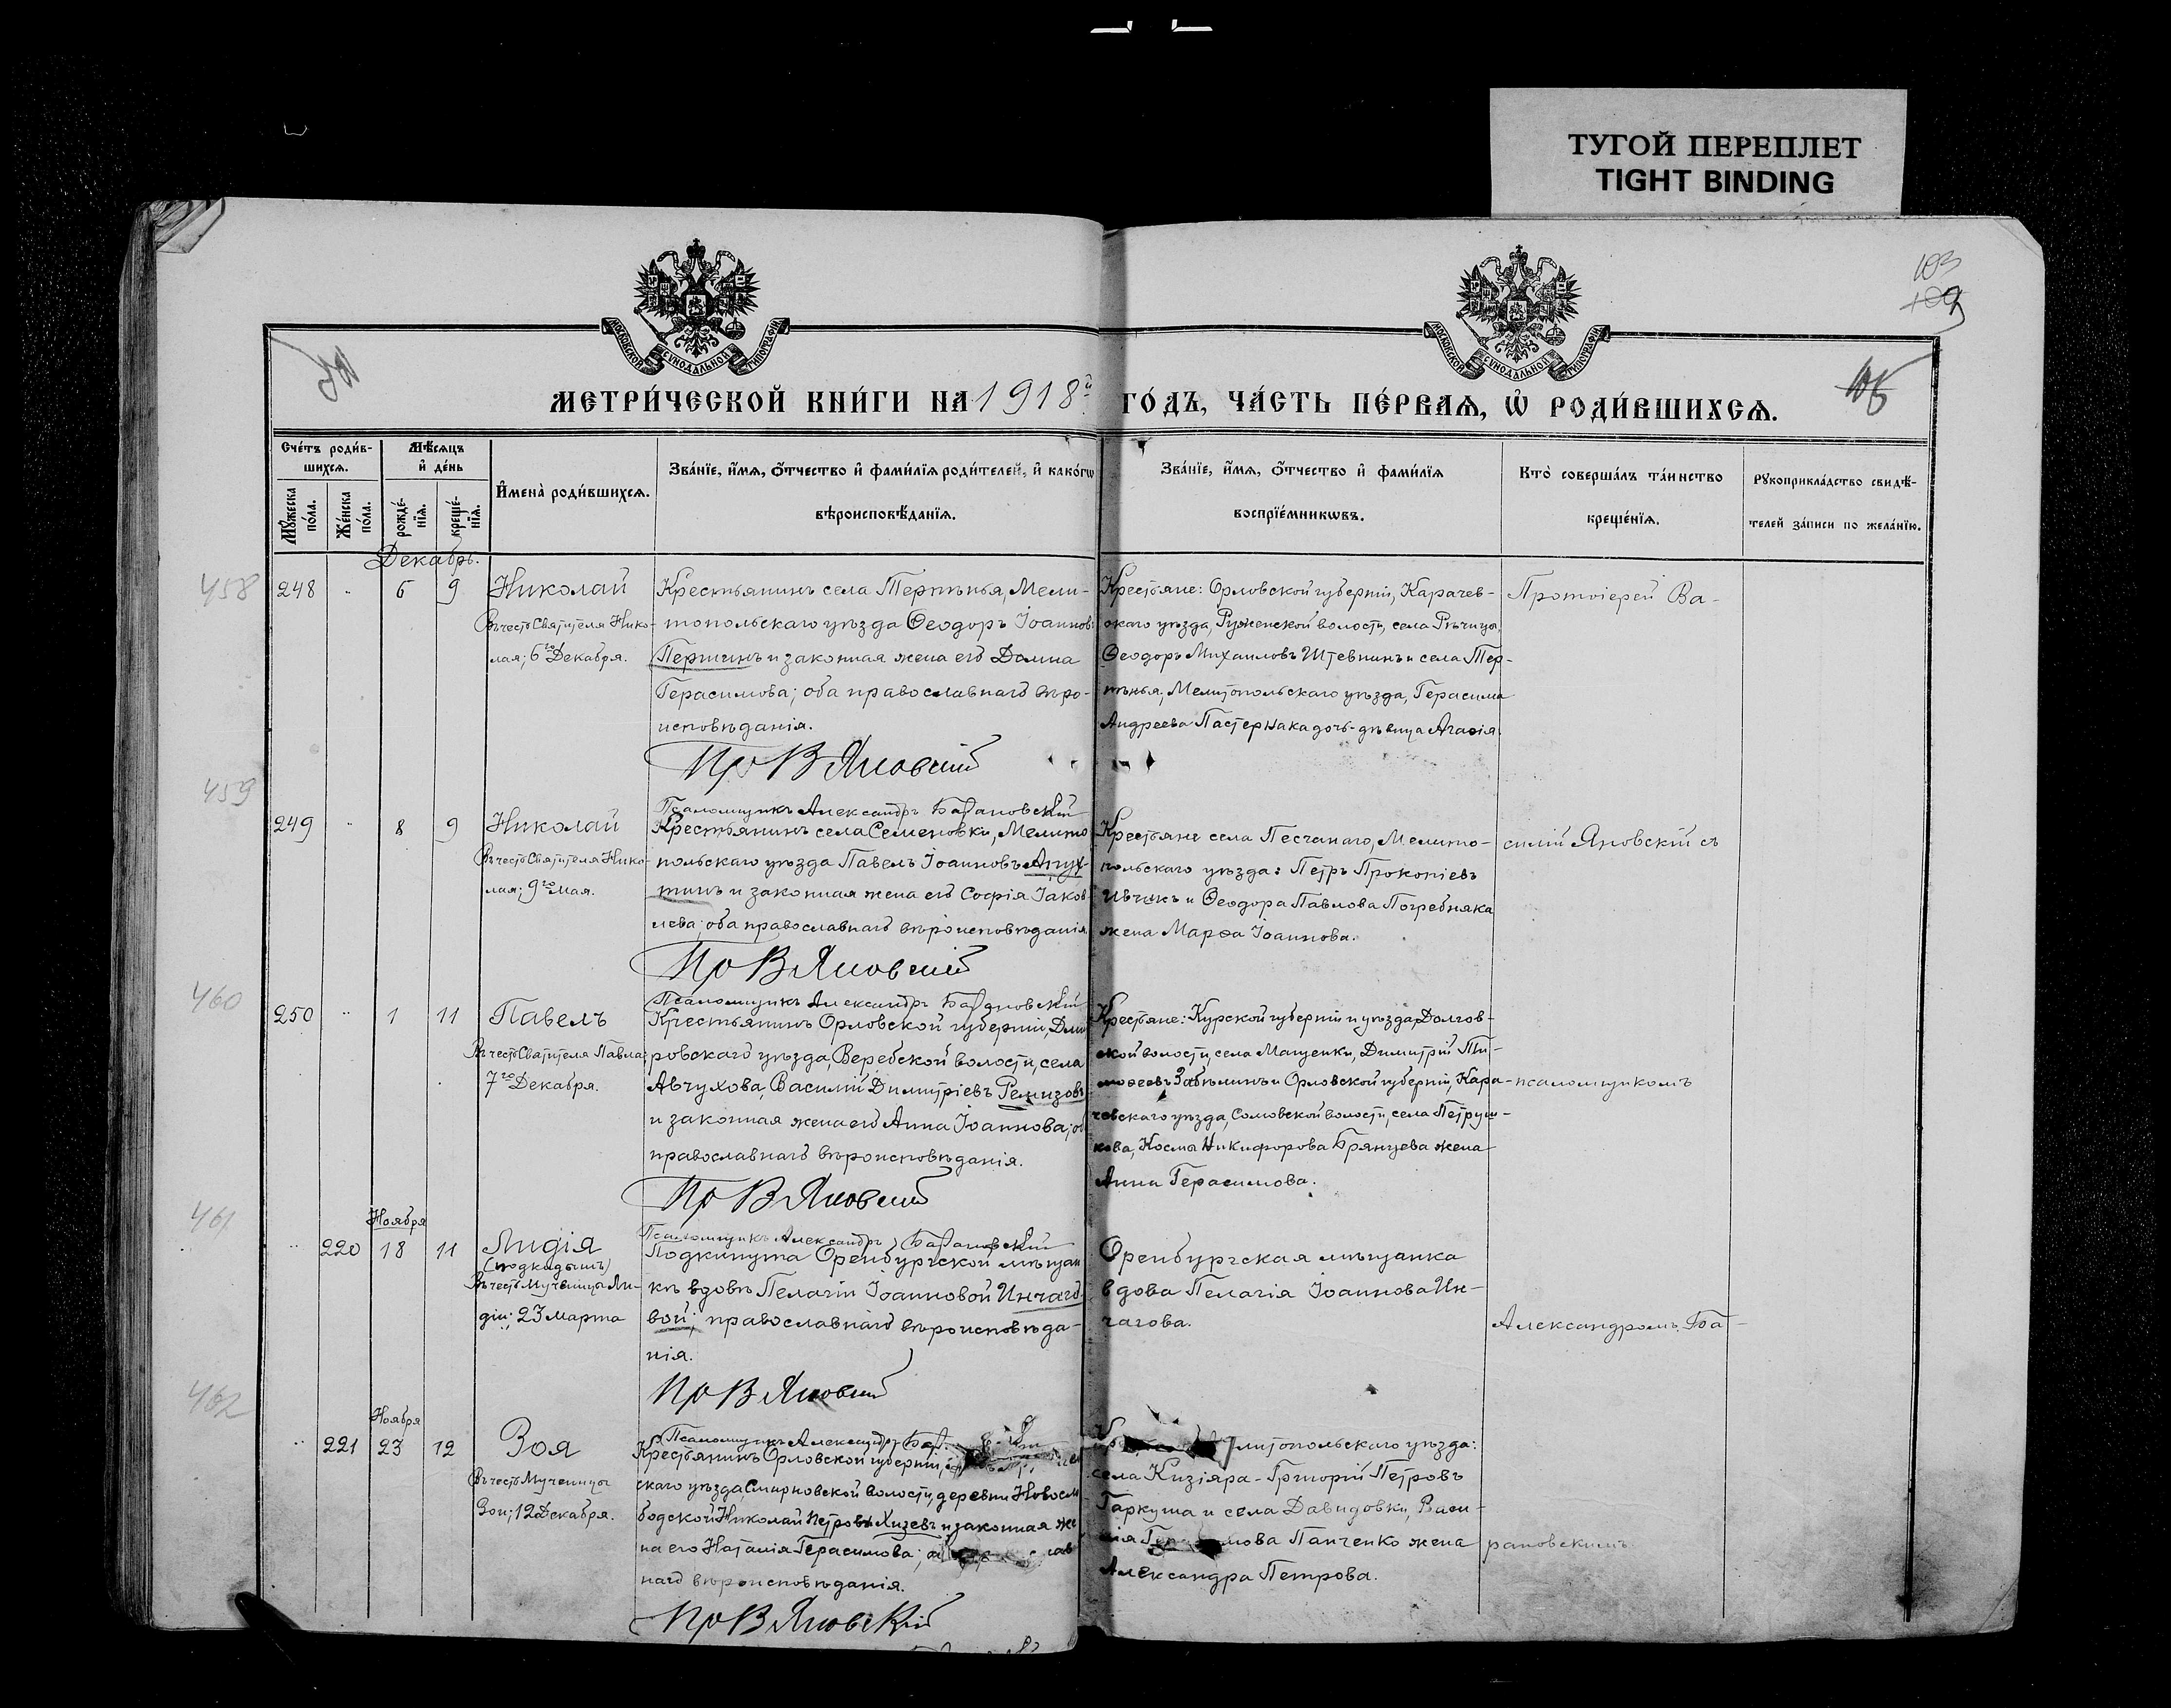 ТУГОЙ ПЕРЕПЛЕТ
TIGHT BINDING
103
109
МОСКОВСКОЙ СѴНОДАЛЬНОЙ ТИПОГРАФІИ
МОСКОВСКОЙ СѴНОДАЛЬНОЙ ТИПОГРАФІИ
МЕТРИ́ЧЕСКОЙ КНИ́ГИ НА 1918й ГО́ДЪ, ЧА́СТЬ ПЕ́РВАѦ, Ѡ҆ РОДИ́ВШИХСѦ.
Счéтъ роди́в-
шихсѧ.
Мꙋ́жеска пóла.
Жéнска пóла.
Мѣ́сѧцъ
и҆ дéнь
рождé-
нїѧ.
крещé-
нїѧ.
И҆менà роди́вшихсѧ.
Звáнїе, и҆́мѧ, ѻ҆́тчество и҆ фами́лїѧ роди́телей, и҆ какóгѡ
вѣроисповѣ́данїѧ.
Звáнїе, и҆́мѧ, ѻ҆́тчество и҆ фами́лїѧ
воспрїéмникѡвъ.
Ктò совершáлъ тáинство
крещéнїѧ.
Рꙋкоприклáдство свидѣ́-
телей зáписи по желáнїю.
Декабрь.
458
248 " 6 9
Николай
Въ честь Святителя Нико-
лая; 6го Декабря.
Крестьянинъ села Терпѣнья, Мели-
топольскаго уѣзда Ѳеодоръ Іоанновъ
Першинъ и законная жена его Домна
Герасимова; оба православнаго вѣро-
исповѣданія.
Пр В Яновскій
Псаломщикъ Александръ Барановскій
Крестьяне: Орловской губерніи, Карачев-
скаго уѣзда, Руженской волости, села Рѣчицы,
Ѳеодоръ Михаиловъ Штевнинъ и села Тер-
пѣнья, Мелитопольскаго уѣзда, Герасима
Андреева Пастернака дочь-дѣвица Агаѳія.
Протоіерей Ва-
459
249 " 8 9
Николай
Въ честь Святителя Нико-
лая; 9го Мая.
Крестьянинъ села Семеновки, Мелито
польскаго уѣзда Павелъ Іоанновъ Апух-
тинъ и законная жена его Софія Іаков
лева; оба православнаго вѣроисповѣданія.
Пр В Яновскій
Псаломщикъ Александръ Барановскій
Крестьяне села Песчанаго, Мелито-
польскаго уѣзда: Петръ Прокопіевъ
Ивчикъ и Ѳеодора Павлова Погребняка
жена Марѳа Іоаннова.
силій Яновскій съ
460
250 " 1 11
Павелъ
Въ честь Святителя Павла;
7го Декабря.
Крестьянинъ Орловской губерніи, Дми
ровскаго уѣзда, Веребской волости, села
Авчухова, Василій Димитріевъ Ремизовъ
и законная жена его Анна Іоаннова; об
православнаго вѣроисповѣданія.
Пр В Яновскій
Псаломщикъ Александръ Барановскій
Крестьяне: Курской губерніи и уѣзда, Долгов-
ской волости, села Мащенки, Димитрій Ти-
моѳеевъ Забѣлинъ и Орловской губерніи, Кара-
чевскаго уѣзда, Сомовской волости, села Петруш-
кова, Космы Никифорова Брянцева жена
Анна Герасимова.
псаломщикомъ
461
Ноября
" 220 18 11
Лидія
(подкидышъ)
Въ честь Мученицы Ли-
діи; 23 Марта
Подкинута Оренбургской мѣщан
кѣ вдовѣ Пелагіи Іоанновой Инчаго
вой; православнаго вѣроисповѣда-
нія.
Пр В Яновскій
Псаломщикъ Александръ
Оренбургская мѣщанка
вдова Пелагія Іоаннова Ин-
чагова.
Александромъ Ба-
462
Ноября
" 221 23 12
Зоя
Въ честь Мученицы
Зои; 12 Декабря.
Крестьянинъ Орловской губерніи,
скаго уѣзда, Смирновской волости, деревни Новосло
бодской Николай Петровъ Хизевъ и законная же
на его Наталія Герасимова;
наго вѣроисповѣданія.
Пр В Яновскій
литопольскаго уѣзда:
села Кизіяра-Григорій Петровъ
Гаркуша и села Давидовки, Васи-
лія Панченко жена
Александра Петрова.
рановскимъ